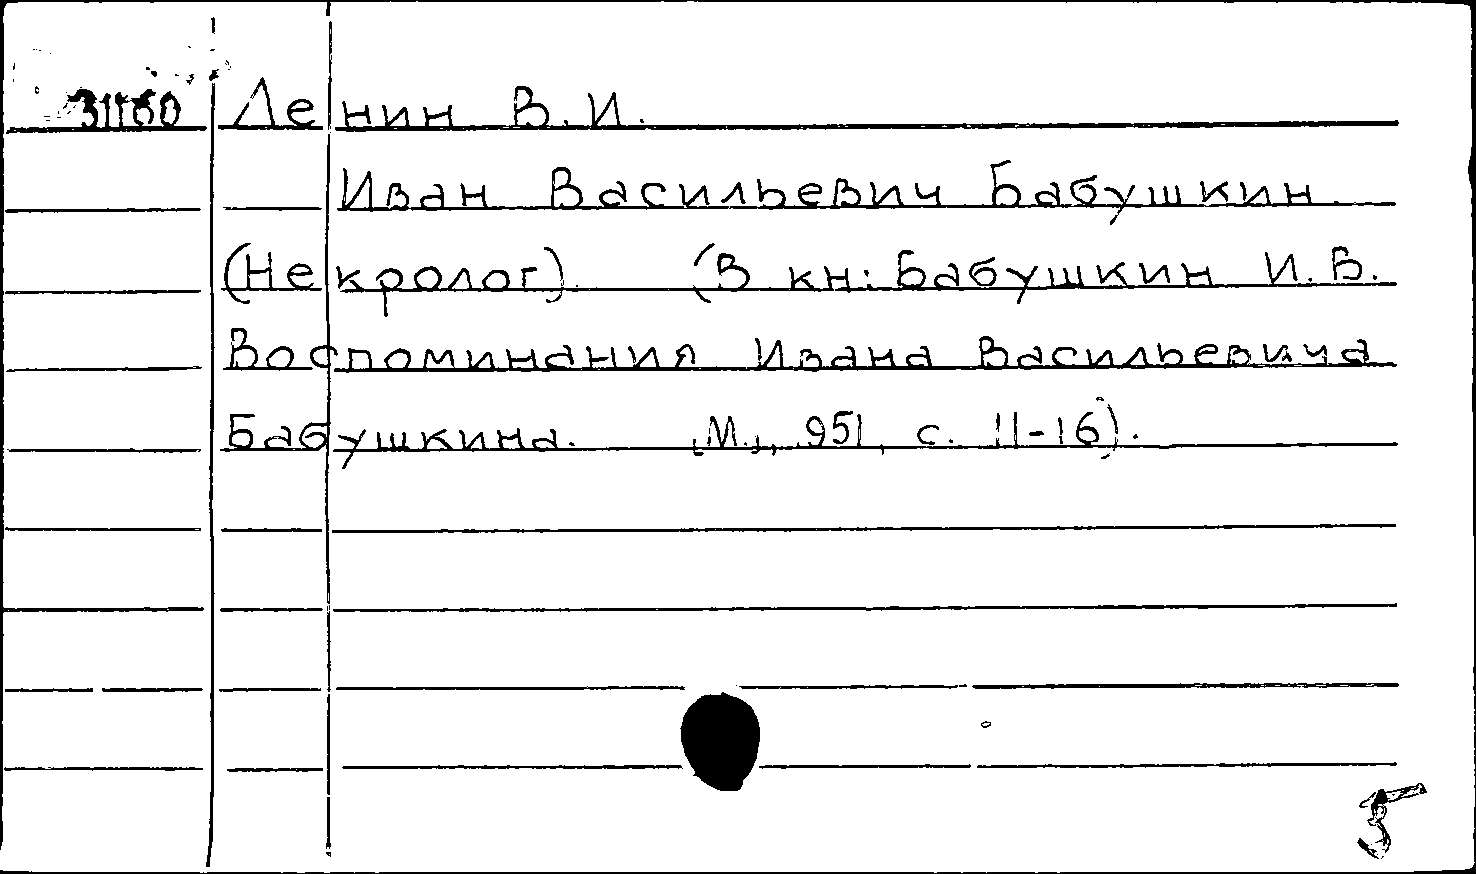 31160 Ленин В.И.
Иван Васильевич Бабушкин.
(Некролог). (В кн: Бабушкин И.В.
Воспоминания Ивана Васильевича
Бабушкина. [М.], 951, с. 11-16).
5